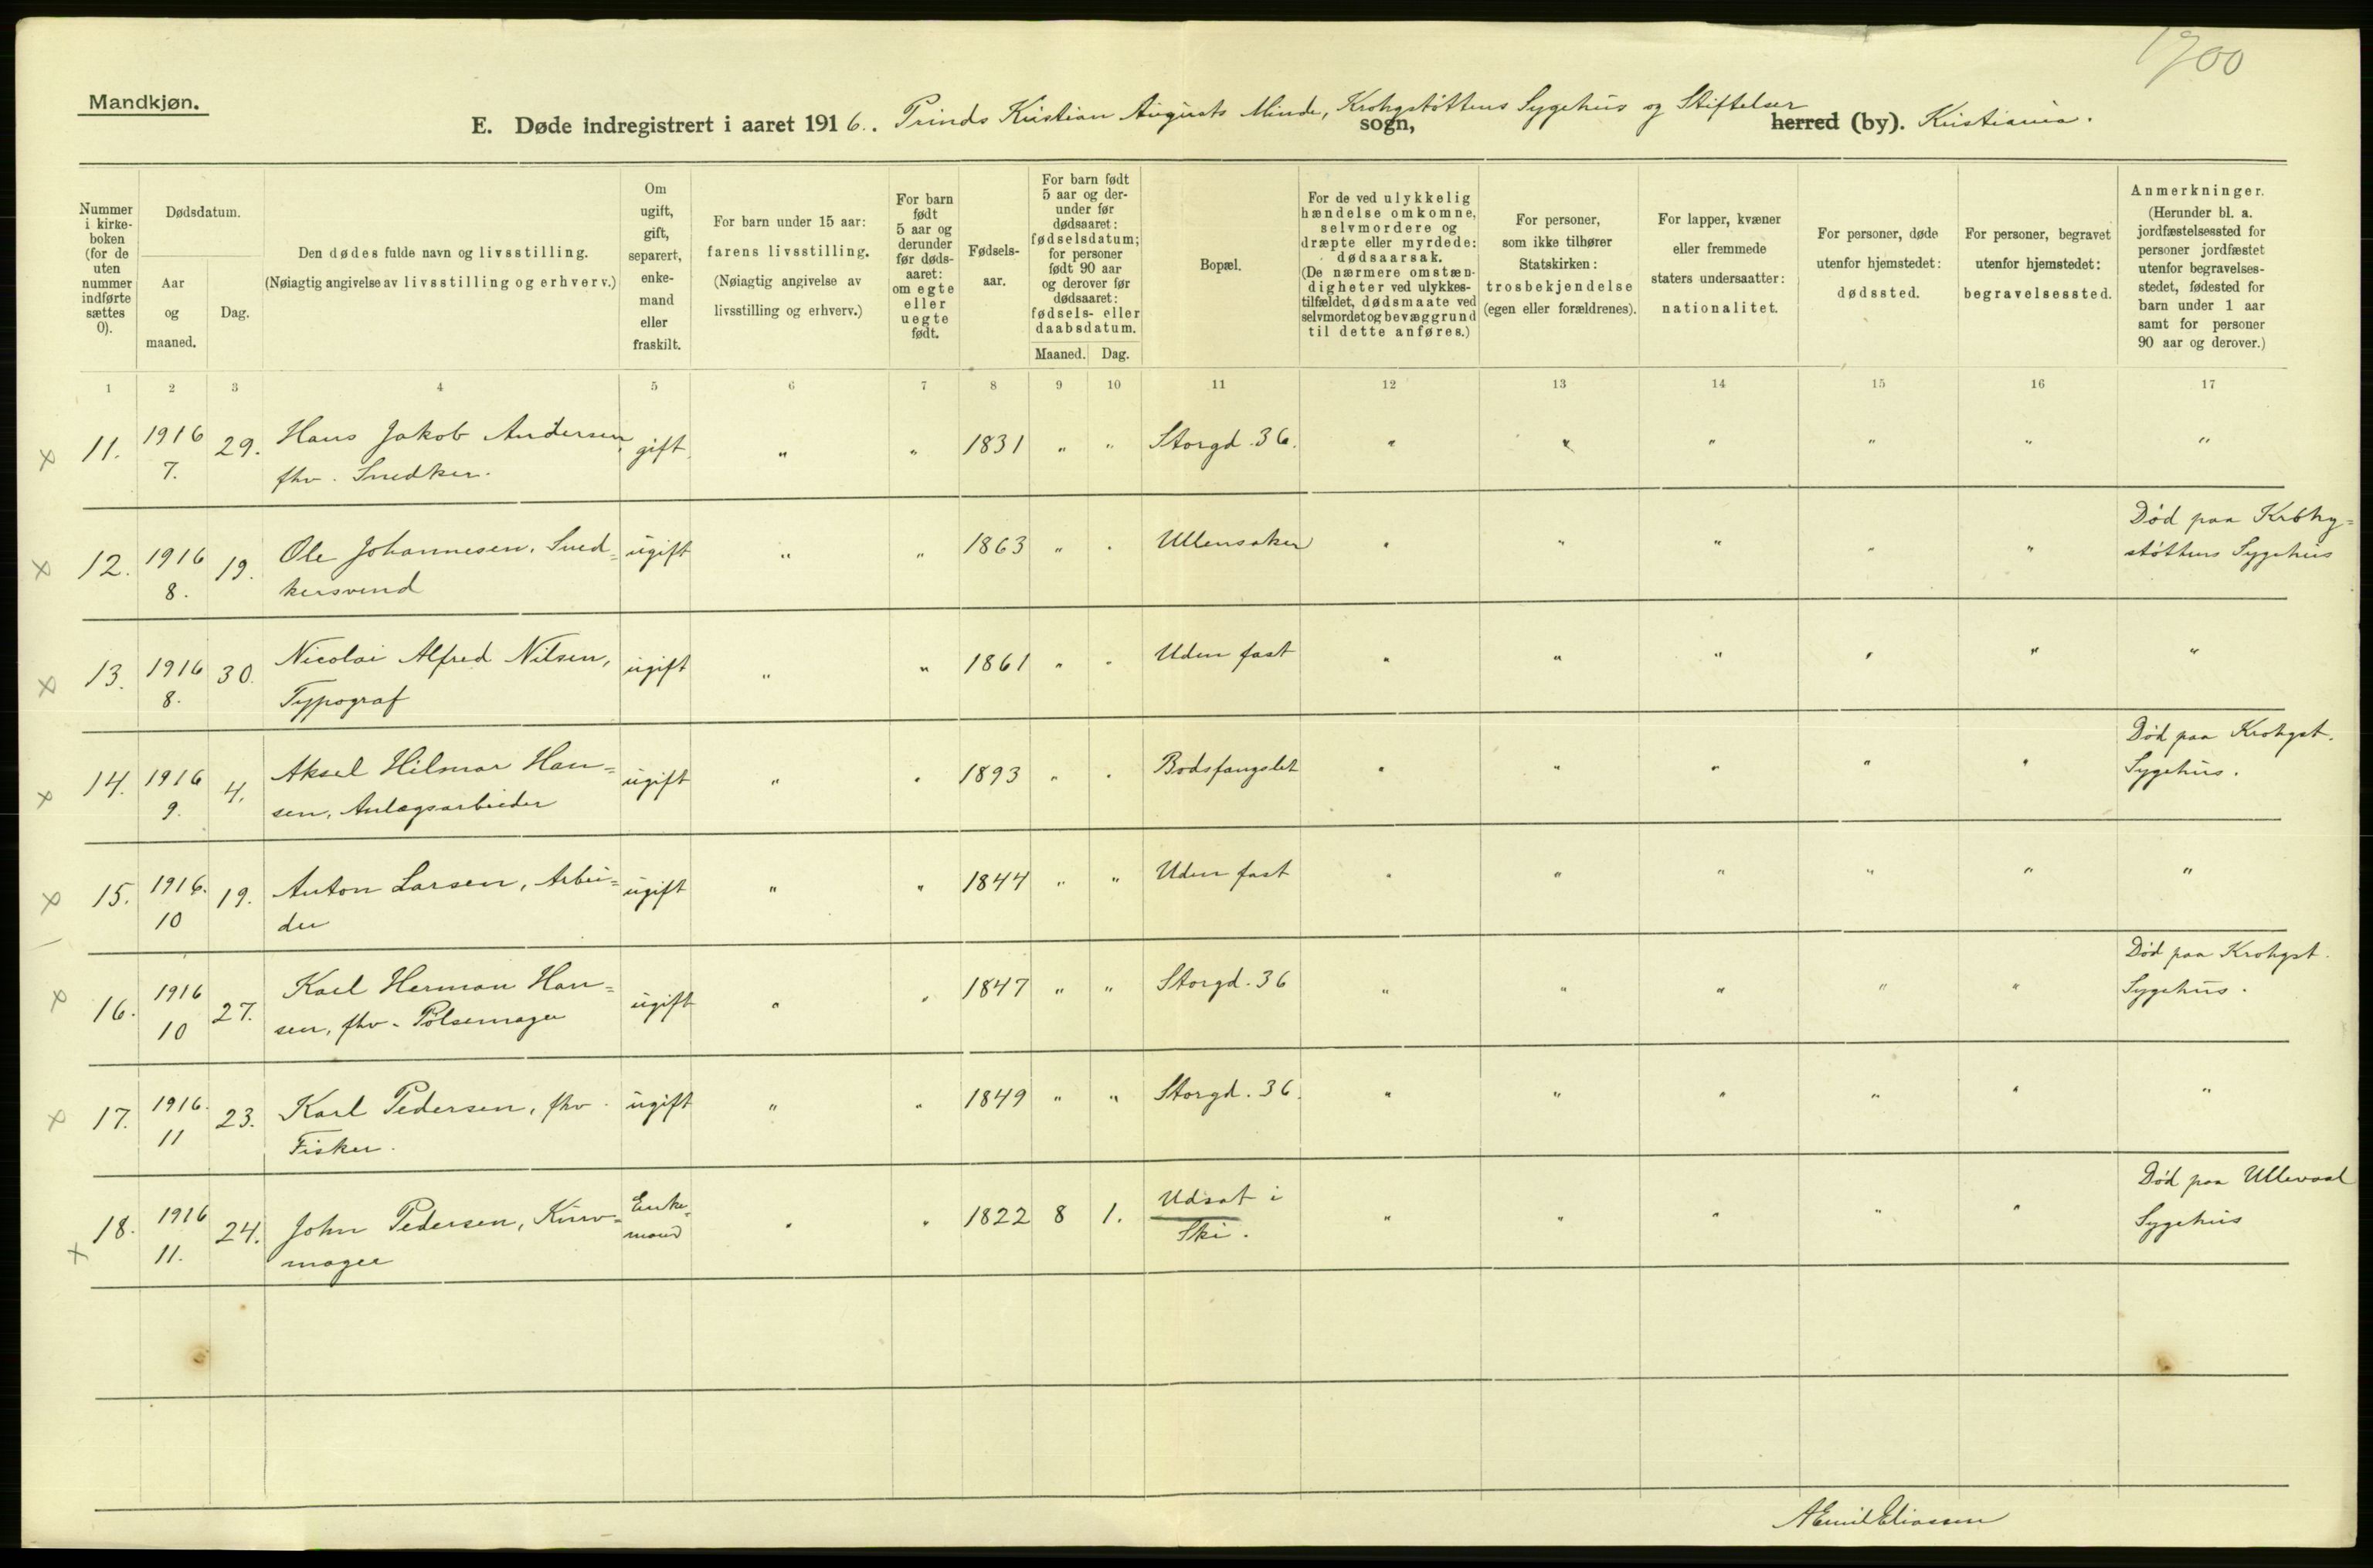 1900
Mandkjøn.
E. Døde indregistrert i aaret 1916. Prinds Kristian Augusts Minde, Krohgstøttens Sygehus og Stiftelser sogn, herred (by). Kristiania.
Nummer
i kirke-
boken
(for de
uten
nummer
indførte
sættes
0).
Dødsdatum.
Aar
og
maaned.
Dag.
Den dødes fulde navn og livsstilling.
(Nøiagtig angivelse av livsstilling og erhverv.)
Om
ugift,
gift,
separert,
enke-
mand
eller
fraskilt.
For barn under 15 aar:
farens livsstilling.
(Nøiagtig angivelse av
livsstilling og erhverv.)
For barn
født
5 aar og
derunder
før døds-
aaret:
om egte
eller
uegte
født.
Fødsels-
aar.
For barn født
5 aar og der-
under før
dødsaaret:
fødselsdatum;
for personer
født 90 aar
og derover før
dødsaaret:
fødsels- eller
daabsdatum.
Maaned. Dag.
Bopæl.
For de ved ulykkelig
hændelse omkomne,
selvmordere og
dræpte eller myrdede:
dødsaarsak.
(De nærmere omstæn-
digheter ved ulykkes-
tilfældet, dødsmaate ved
selvmordet og bevæggrund
til dette anføres.)
For personer,
som ikke tilhører
Statskirken:
trosbekjendelse
(egen eller forældrenes).
For lapper, kvæner
eller fremmede
staters undersaatter:
nationalitet.
For personer, døde
utenfor hjemstedet:
dødssted.
For personer, begravet
utenfor hjemstedet:
begravelsessted.
Anmerkninger.
(Herunder bl. a.
jordfæstelsessted for
personer jordfæstet
utenfor begravelses-
stedet, fødested for
barn under 1 aar
samt for personer
90 aar og derover.)
1 2 3 4 5 6 7 8 9 10 11 12 13 14 15 16 17
11. 1916 29. Hans Jakob Andersen, gift " " 1831 " " Storgd. 36. " " " " " "
7. fhv. Snedker.
12. 1916 19. Ole Johannesen, Sned= ugift " " 1863 " " Ullensaker " " " " " Død paa Krohg=
8. kersvend støttens Sygehus
13. 1916 30. Nicolai Alfred Nilsen, ugift " " 1861 " " Uden fast " " " " " "
8. Typograf
14. 1916 4. Aksel Hilmar Han= ugift " " 1893 " " Bodsfængslet " " " " " Død paa Krohgst.
9. sen, Anlægsarbeider Sygehus.
15. 1916. 19. Anton Larsen, Arbei= ugift " " 1844 " " Uden fast " " " " " "
10 der
16. 1916 27. Karl Herman Han= ugift " " 1847 " " Storgd. 36 " " " " " Død paa Krohgst.
10 sen, fhv. Pølsemager Sygehus.
17. 1916. 23. Karl Pedersen, fhv. ugift " " 1849 " " Storgd. 36. " " " " " "
11 Fisker.
18. 1916 24. John Pedersen, Kurv= Enke= " " 1822 8 1. Udsat i " " " " " Død paa Ullevaal
11. mager mand Ski. Sygehus
A Emil Eliassen